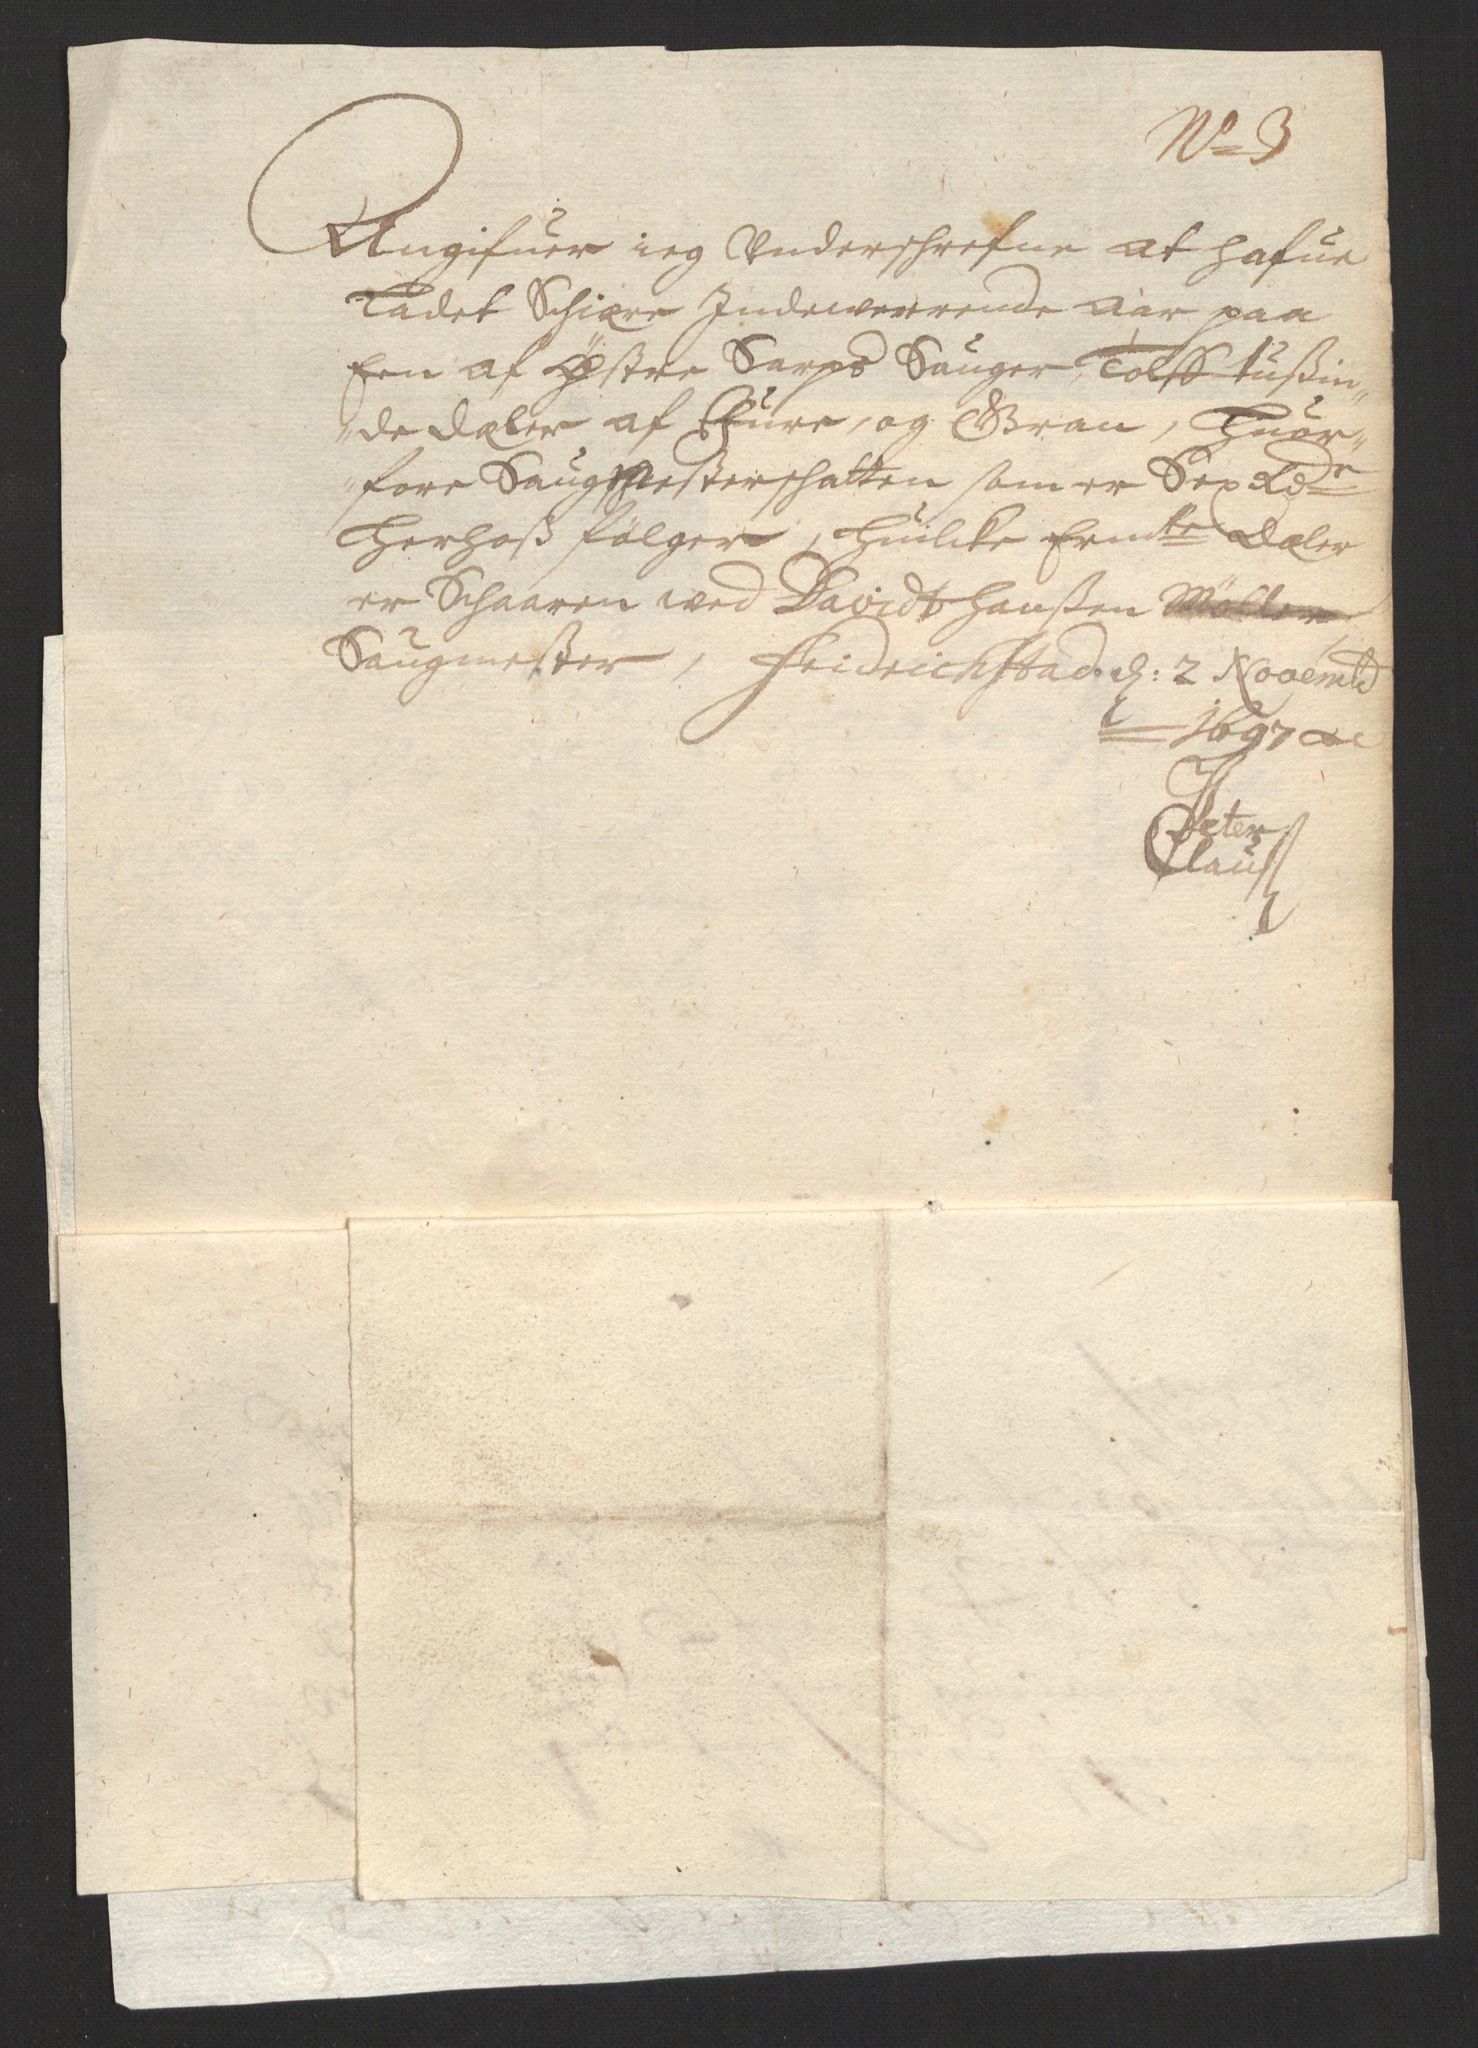 No 3
Angifuer ieg Underschrefne at hafue
Ladet Schiære Indeværende Aar paa
Een af Østre Sarps Sauger, Tolff tußin„
„de dæler af Fure, og Gran, Huor„
„fore Saug Mesterschatten som er Sex Rdr
Herhoß følger, Huilcke Ermte Dæler
er Schaaren ved Davidt Hanßen Möller
Saugmester, Fridrichstad d: 2 Novembr
1697
Peter
Clauß